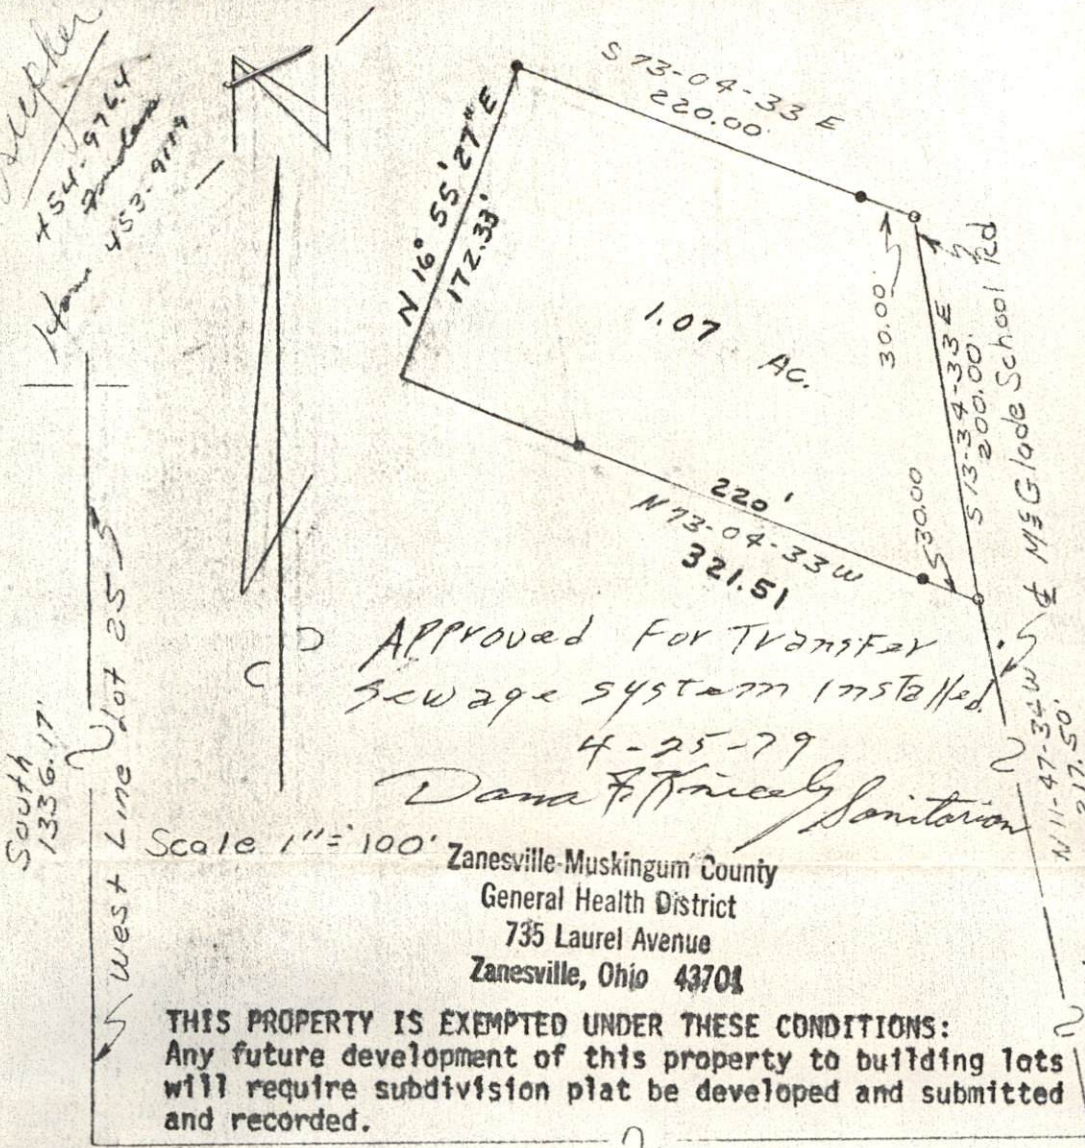 454-9764
Home 453-9119
S 73-04-33 E
220.00
N 16° 55' 27" E
172.33'
1.07 AC.
30.00
S 13-34-33 E
200.00'
₵ McGlade School Rd
220'
N 73-04-33 W
321.51
30.00
N 11-47-34 W
217.50'
South
1336.17'
West Line Lot 25
APProved For Transfer
Sewage system Installed
4-25-79
Dana F. Knicely Sanitarian
Scale 1"=100'
Zanesville-Muskingum County
General Health District
735 Laurel Avenue
Zanesville, Ohio 43701
THIS PROPERTY IS EXEMPTED UNDER THESE CONDITIONS:
Any future development of this property to building lots
will require subdivision plat be developed and submitted
and recorded.